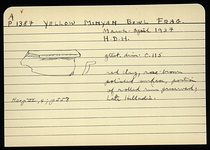 A
P 1387 YELLOW MINYAN BOWL FRAG.
March-April 1937
H.D.H.
drest. dim. 0.115
red clay, rose brown
polished surface, portion
of rolled rim preserved;
Late Helladic.
Hesperia, p. 559